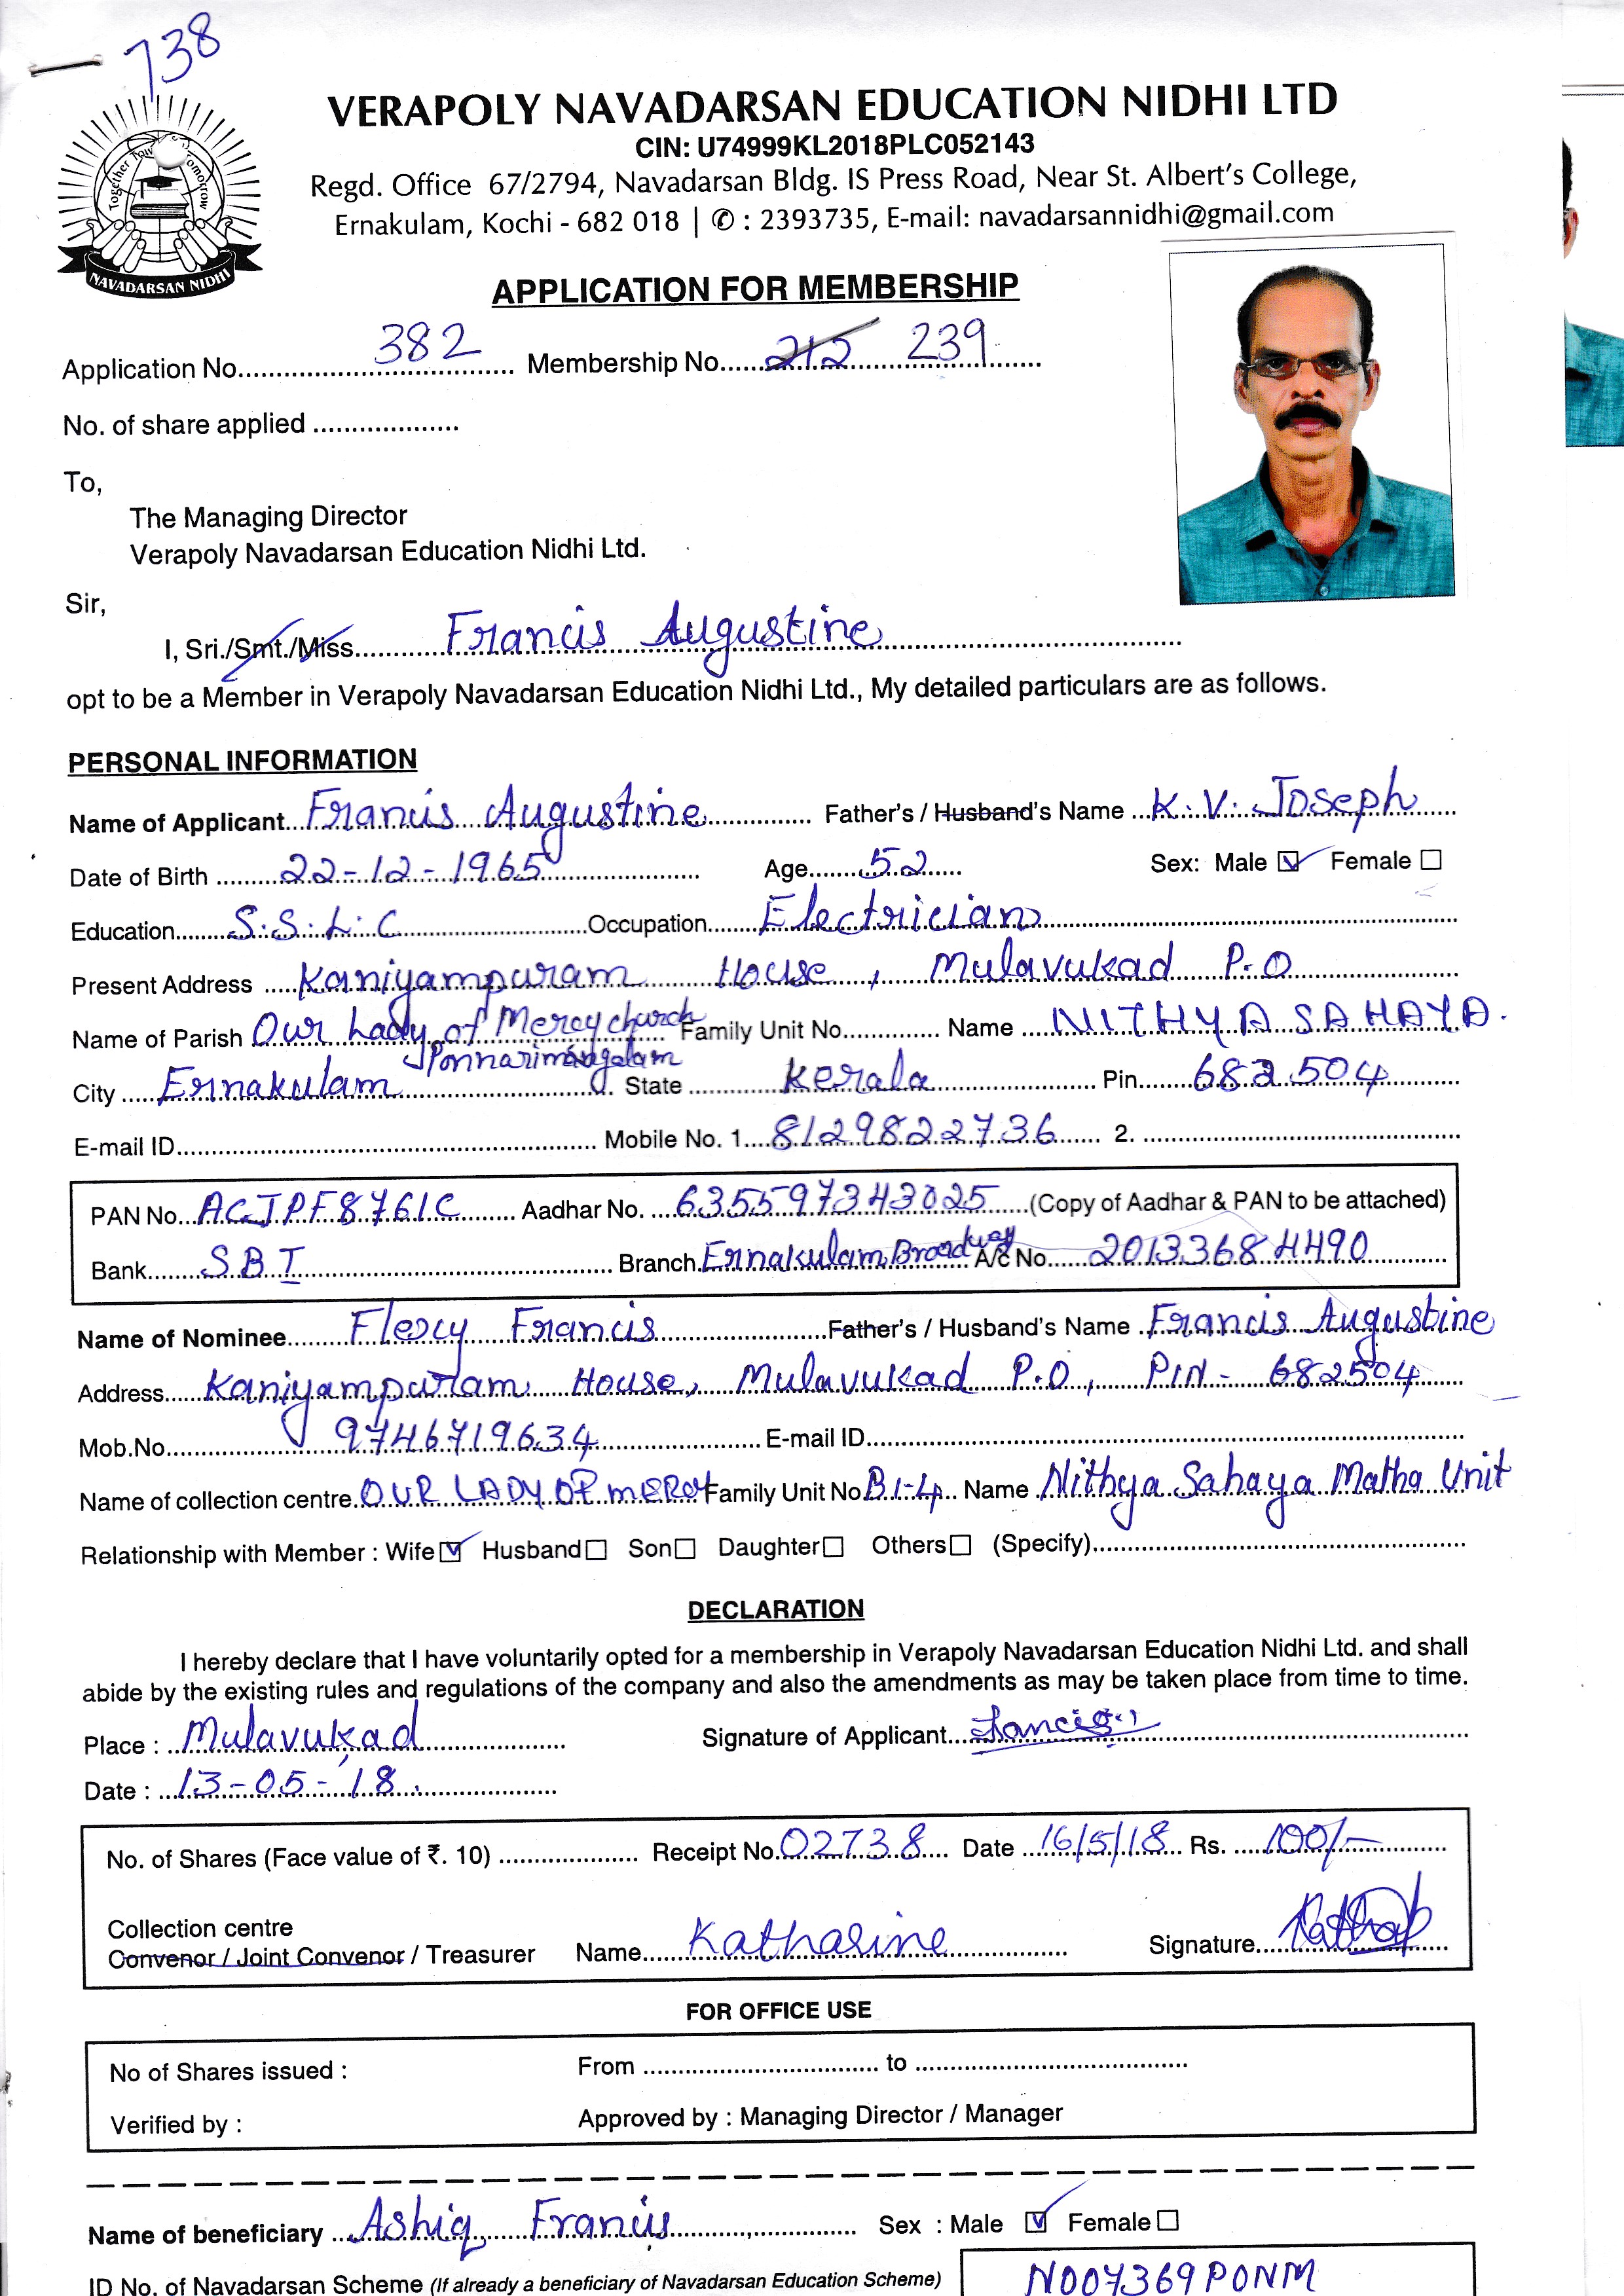 738
Together Tow omorrow
NAVADARSAN NIDHI
VERAPOLY NAVADARSAN EDUCATION NIDHI LTD
CIN: U74999KL2018PLC052143
Regd. Office 67/2794, Navadarsan Bldg. IS Press Road, Near St. Albert's College,
Ernakulam, Kochi - 682 018 | ✆ : 2393735, E-mail: navadarsannidhi@gmail.com
APPLICATION FOR MEMBERSHIP
Application No. 382 Membership No. 212 239
No. of share applied
To,
The Managing Director
Verapoly Navadarsan Education Nidhi Ltd.
Sir,
I, Sri./Smt./Miss. Francis Augustine
opt to be a Member in Verapoly Navadarsan Education Nidhi Ltd., My detailed particulars are as follows.
PERSONAL INFORMATION
Name of Applicant Francis Augustine Father's / Husband's Name K.V. Joseph
Date of Birth 22-12-1965 Age 52 Sex: Male ☑ Female ☐
Education S.S.L.C Occupation Electrician
Present Address Kaniyampuram House, Mulavukad P.O
Name of Parish Our Lady of Mercy church Family Unit No. Name NITHYA SAHAYA.
Ponnarimangalam
City Ernakulam State Kerala Pin 682504
E-mail ID Mobile No. 1. 8129822736 2.
PAN No. ACJPF8761C Aadhar No. 635597343025 (Copy of Aadhar & PAN to be attached)
Bank SBI Branch Ernakulam Broadway A/c No. 20133684490
Name of Nominee Flercy Francis Father's / Husband's Name Francis Augustine
Address Kaniyampuram House, Mulavukad P.O, PIN - 682504
Mob.No. 9746719634 E-mail ID
Name of collection centre OUR LADY OF MERCY Family Unit No. B1-4 Name Nithya Sahaya Matha Unit
Relationship with Member : Wife ☑ Husband ☐ Son ☐ Daughter ☐ Others ☐ (Specify)
DECLARATION
I hereby declare that I have voluntarily opted for a membership in Verapoly Navadarsan Education Nidhi Ltd. and shall
abide by the existing rules and regulations of the company and also the amendments as may be taken place from time to time.
Place : Mulavukad Signature of Applicant Francis
Date : 13-05-'18.
No. of Shares (Face value of ₹. 10) Receipt No. 02738 Date 16/5/18 Rs. 100/-
Collection centre
Convenor / Joint Convenor / Treasurer Name Katharine Signature
FOR OFFICE USE
No of Shares issued : From to
Verified by : Approved by : Managing Director / Manager
Name of beneficiary Ashiq Francis Sex : Male ☑ Female ☐
ID No. of Navadarsan Scheme (If already a beneficiary of Navadarsan Education Scheme) N007369PONM